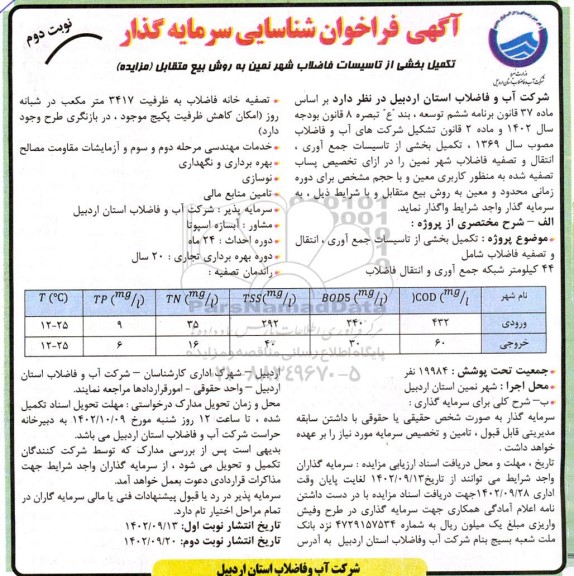 نوبت دوم
آگهی فراخوان شناسایی سرمایه گذار
تکمیل بخشی از تاسیسات فاضلاب شهر نمین به روش بیع متقابل (مزایده)
وزارت نیرو
شرکت آب و فاضلاب استان اردبیل
شرکت آب و فاضلاب استان اردبیل در نظر دارد بر اساس
ماده ۳۷ قانون برنامه ششم توسعه ، بند "ع" تبصره ۸ قانون بودجه
سال ۱۴۰۲ و ماده ۲ قانون تشکیل شرکت های آب و فاضلاب
مصوب سال ۱۳۶۹ ، تکمیل بخشی از تاسیسات جمع آوری ،
انتقال و تصفیه فاضلاب شهر نمین را در ازای تخصیص پساب
تصفیه شده به منظور کاربری معین و با حجم مشخص برای دوره
زمانی محدود و معین به روش بیع متقابل و با شرایط ذیل ، به
سرمایه گذار واجد شرایط واگذار نماید.
الف – شرح مختصری از پروژه :
• موضوع پروژه : تکمیل بخشی از تاسیسات جمع آوری ، انتقال
و تصفیه فاضلاب شامل
۴۴ کیلومتر شبکه جمع آوری و انتقال فاضلاب
• تصفیه خانه فاضلاب به ظرفیت ۳۴۱۷ متر مکعب در شبانه
روز (امکان کاهش ظرفیت پکیج موجود ، در بازنگری طرح وجود
دارد)
• خدمات مهندسی مرحله دوم و سوم و آزمایشات مقاومت مصالح
• بهره برداری و نگهداری
• نوسازی
• تامین منابع مالی
• سرمایه پذیر : شرکت آب و فاضلاب استان اردبیل
• مشاور : آبسازه اسپوتا
• دوره احداث : ۲۴ ماه
• دوره بهره برداری تجاری : ۲۰ سال
• راندمان تصفیه :
نام شهر (COD (mg/l BOD5 (mg/l) TSS(mg/l) TN (mg/l) TP (mg/l) T (°C)
ورودی ۴۳۲ ۳۴۰ ۲۹۲ ۳۵ ۹ ۱۲-۲۵
خروجی ۶۰ ۳۰ ۴۰ ۱۶ ۶ ۱۲-۲۵
• جمعیت تحت پوشش : ۱۹۹۸۴ نفر
• محل اجرا : شهر نمین استان اردبیل
• ب– شرح کلی برای سرمایه گذاری :
سرمایه گذار به صورت شخص حقیقی یا حقوقی با داشتن سابقه
مدیریتی قابل قبول ، تامین و تخصیص سرمایه مورد نیاز را بر عهده
خواهد داشت .
تاریخ ، مهلت و محل دریافت اسناد ارزیابی مزایده : سرمایه گذاران
واجد شرایط می توانند از تاریخ ۱۴۰۲/۰۹/۱۳ لغایت پایان وقت
اداری ۱۴۰۲/۰۹/۲۸ جهت دریافت اسناد مزایده با در دست داشتن
نامه اعلام آمادگی همکاری جهت سرمایه گذاری در طرح وفیش
واریزی مبلغ یک میلون ریال به شماره ۴۷۲۹۱۵۷۵۳۴ نزد بانک
ملت شعبه بسیج بنام شرکت آب و فاضلاب استان اردبیل به آدرس
اردبیل – شهرک اداری کارشناسان – شرکت آب و فاضلاب استان
اردبیل – واحد حقوقی - امورقراردادها مراجعه نمایند.
محل و زمان تحویل مدارک درخواستی : مهلت تحویل اسناد تکمیل
شده ، تا ساعت ۱۲ روز شنبه مورخ ۱۴۰۲/۱۰/۰۹ به دبیرخانه
حراست شرکت آب و فاضلاب استان اردبیل می باشد.
بدیهی است پس از بررسی مدارک که توسط شرکت کنندگان
تکمیل و تحویل می شود ، از سرمایه گذاران واجد شرایط جهت
مذاکرات قراردادی دعوت بعمل خواهد آمد.
سرمایه پذیر در رد یا قبول پیشنهادات فنی یا مالی سرمایه گاران در
تمام مراحل اختیار تام دارد.
تاریخ انتشار نوبت اول: ۱۴۰۲/۰۹/۱۳
تاریخ انتشار نوبت دوم: ۱۴۰۲/۰۹/۲۰
شرکت آب وفاضلاب استان اردبیل